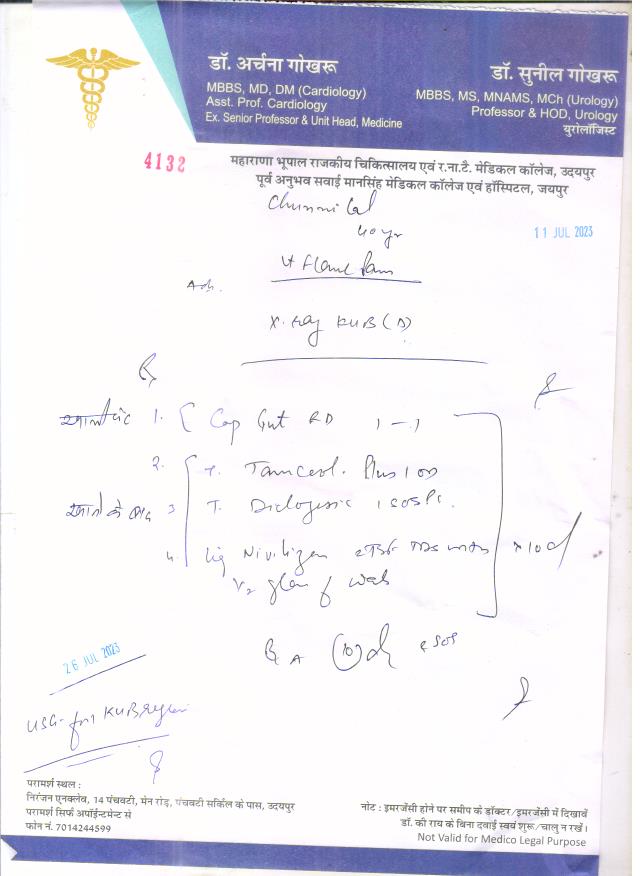 डॉ. अर्चना गोखरू
MBBS, MD, DM (Cardiology)
Asst. Prof. Cardiology
Ex. Senior Professor & Unit Head, Medicine
डॉ. सुनील गोखरू
MBBS, MS, MNAMS, MCh (Urology)
Professor & HOD, Urology
यूरोलॉजिस्ट
4132
महाराणा भूपाल राजकीय चिकित्सालय एवं र.ना.टै. मेडिकल कॉलेज, उदयपुर
पूर्व अनुभव सवाई मानसिंह मेडिकल कॉलेज एवं हॉस्पिटल, जयपुर
Chunni Lal
40 yr
11 JUL 2023
Flank Pain
Adv.
X-Ray KUB
1. Cap Gut RD 1-1
2. T. Plus 1 OD
खाने के बाद 3 T. 1 SOS
4.
x 10 d
glass of
SOS
26 JUL 2023
USG- for KUB
परामर्श स्थल :
निरंजन एनक्लेव, 14 पंचवटी, मेन रोड़, पंचवटी सर्किल के पास, उदयपुर
परामर्श सिर्फ अपॉईन्टमेन्ट से
फोन नं. 7014244599
नोट : इमरजेंसी होने पर समीप के डॉक्टर/इमरजेंसी में दिखावें
डॉ. की राय के बिना दवाई स्वयं शुरू/चालु न रखें।
Not Valid for Medico Legal Purpose